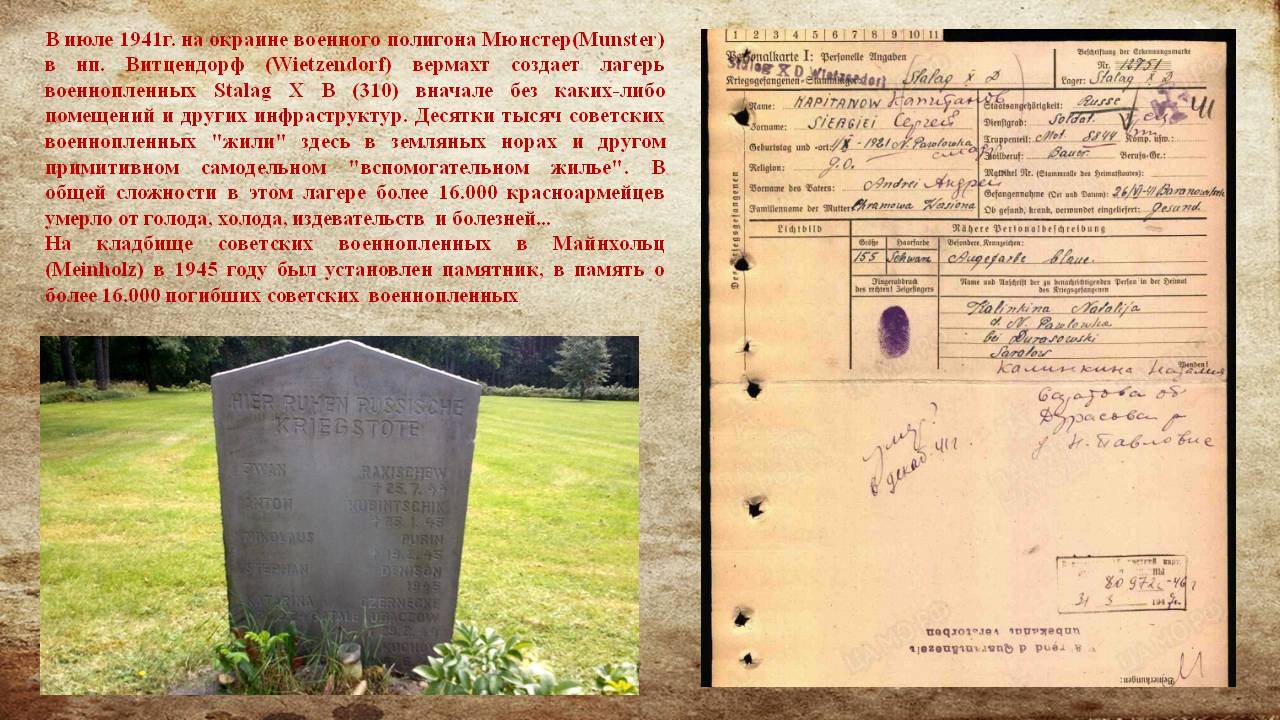 В июле 1941г. на окраине военного полигона Мюнстер(Munster)
в нп. Витцендорф (Wietzendorf) вермахт создает лагерь
военнопленных Stalag X B (310) вначале без каких-либо
помещений и других инфраструктур. Десятки тысяч советских
военнопленных "жили" здесь в земляных норах и другом
примитивном самодельном "вспомогательном жилье". В
общей сложности в этом лагере более 16.000 красноармейцев
умерло от голода, холода, издевательств и болезней...
На кладбище советских военнопленных в Майнхольц
(Meinholz) в 1945 году был установлен памятник, в память о
более 16.000 погибших советских военнопленных
HIER RUHEN RUSSISCHE
KRIEGSTOTE
IWAN RAXISCHEW
† 25.7.44
ANTON KUBINTSCHIK
† 25.1.45
NIKOLAUS PURIN
† 19.2.45
STEPHAN DENISON
1945
CZERNECKE
1 2 3 4 5 6 7 8 9 10 11
Personalkarte I: Personelle Angaben
Beschriftung der Erkennungsmarke
Nr. 12751
Stalag X D Wietzendorf
Kriegsgefangenen-Stammlager: Stalag X D
Lager: Stalag X D
Des Kriegsgefangenen
Name: KAPITANOW Капитанов
Staatsangehörigkeit: Russe
Vorname: SIERGIEJ Сергей
Dienstgrad: Soldat.
Geburtstag und -ort: 1921 N. Pawlowka
Truppenteil: Mot. 8844 Komp. usw.:
Religion: g.O.
Zivilberuf: Bauer Berufs-Gr.:
Vorname des Vaters: Andrei Андрей
Matrikel Nr. (Stammrolle des Heimatstaates):
Gefangennahme (Ort und Datum): 26/VI-41 Baranowitschi
Familienname der Mutter: Chramowa Wasiona
Ob gesund, krank, verwundet eingeliefert: gesund
Lichtbild
Nähere Personalbeschreibung
Größe Haarfarbe Besondere Kennzeichen:
155 Schwarz Augefarbe blaue.
Fingerabdruck
des rechten! Zeigefingers
Name und Anschrift der zu benachrichtigenden Person in der Heimat
des Kriegsgefangenen
Kalinkina Natalija
d. N. Pawlowka
bei Durasowski
Saratow
Wenden!
Калинкина Наталия
Саратова об
Дурасовал р
д Н. Павловке
умер?
в декаб. 41г.
80972с-46г
31 3
unbekannt verstorben
d Quarantänezeit
Bemerkungen:
ЦАМО.РФ